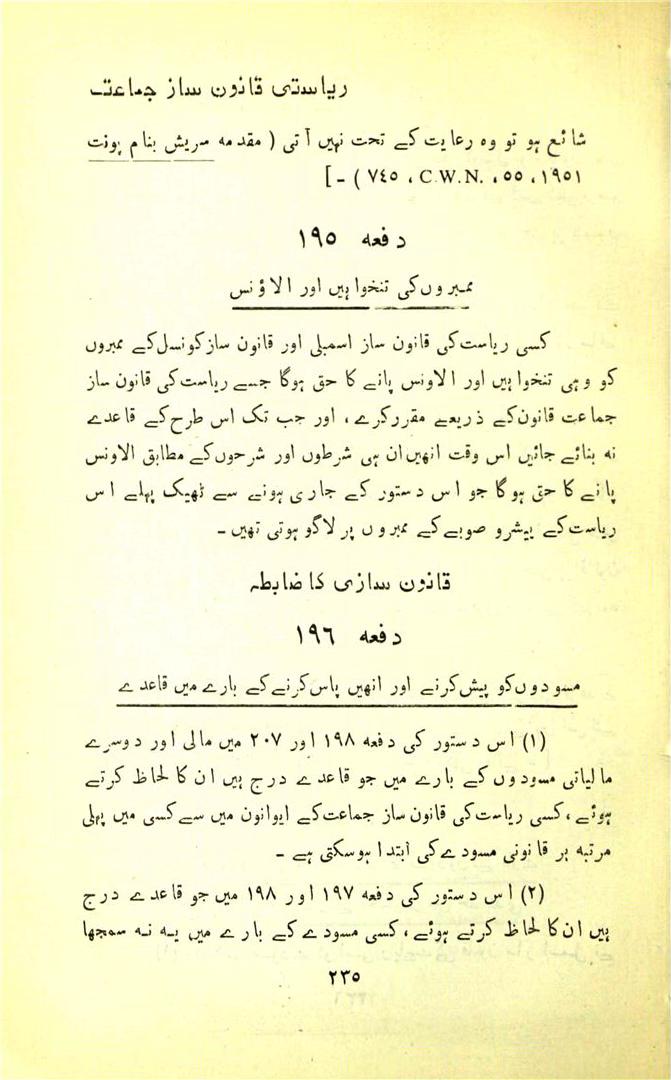 ریاستی قانون ساز جماعت
شائع ہو تو وہ رعایت کے تحت نہیں آتی ( مقدمه سریش بنام پونت
۱۹۵۱ ، ۵۵ ، .C.W.N ، ۷٤۵ ) - ]
دفعه ۱۹۵
ممبروں کی تنخواہیں اور الاؤنس
کسی ریاست کی قانون ساز اسمبلی اور قانون ساز کونسل کے ممبروں
کو وہی تنخواہیں اور الاونس پانے کا حق ہوگا جسے ریاست کی قانون ساز
جماعت قانون کے ذریعے مقرر کرے ، اور جب تک اس طرح کے قاعدے
نه بنائے جائیں اس وقت انھیں ان ہی شرطوں اور شرحوں کے مطابق الاونس
پانے کا حق ہوگا جو اس دستور کے جاری ہونے سے ٹھیک پہلے اس
ریاست کے پیشرو صوبے کے ممبروں پر لاگو ہوتی تھیں -
قانون سازی کا ضابطہ
دفعه ۱۹٦
مسودوں کو پیش کرنے اور انھیں پاس کرنے کے بارے میں قاعدے
(۱) اس دستور کی دفعه ۱۹۸ اور ۲۰۷ میں مالی اور دوسرے
مالیاتی مسودوں کے بارے میں جو قاعدے درج ہیں ان کا لحاظ کرتے
ہوئے ، کسی ریاست کی قانون ساز جماعت کے ایوانون میں سے کسی میں پہلی
مرتبه ہر قانونی مسودے کی ابتدا ہوسکتی ہے -
(۲) اس دستور کی دفعه ۱۹۷ اور ۱۹۸ میں جو قاعدے درج
ہیں ان کا لحاظ کرتے ہوئے ، کسی مسودے کے بارے میں یہ نہ سمجھا
۲۳۵